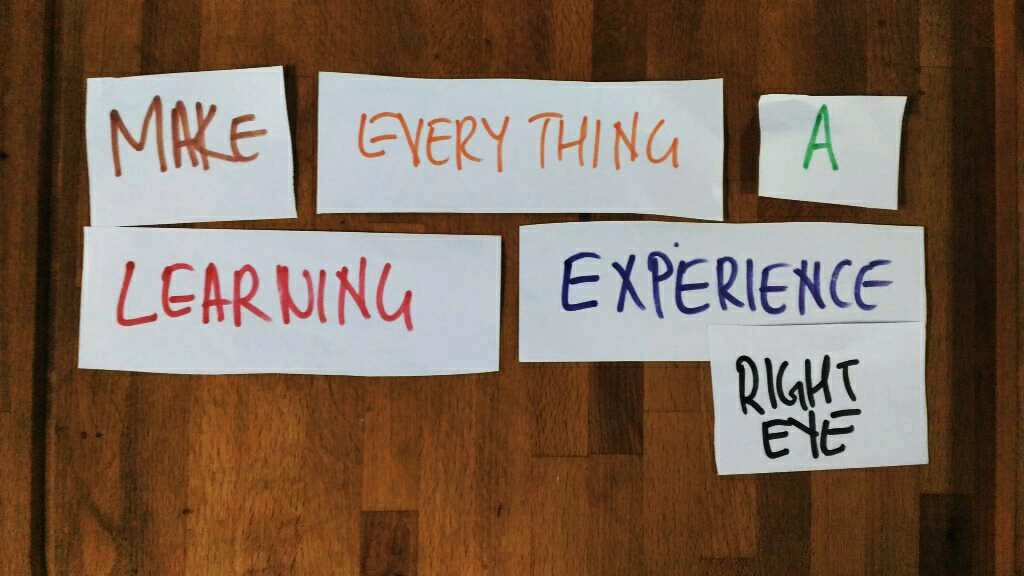 MAKE EVERY THING A
LEARNING EXPERIENCE
RIGHT
EYE